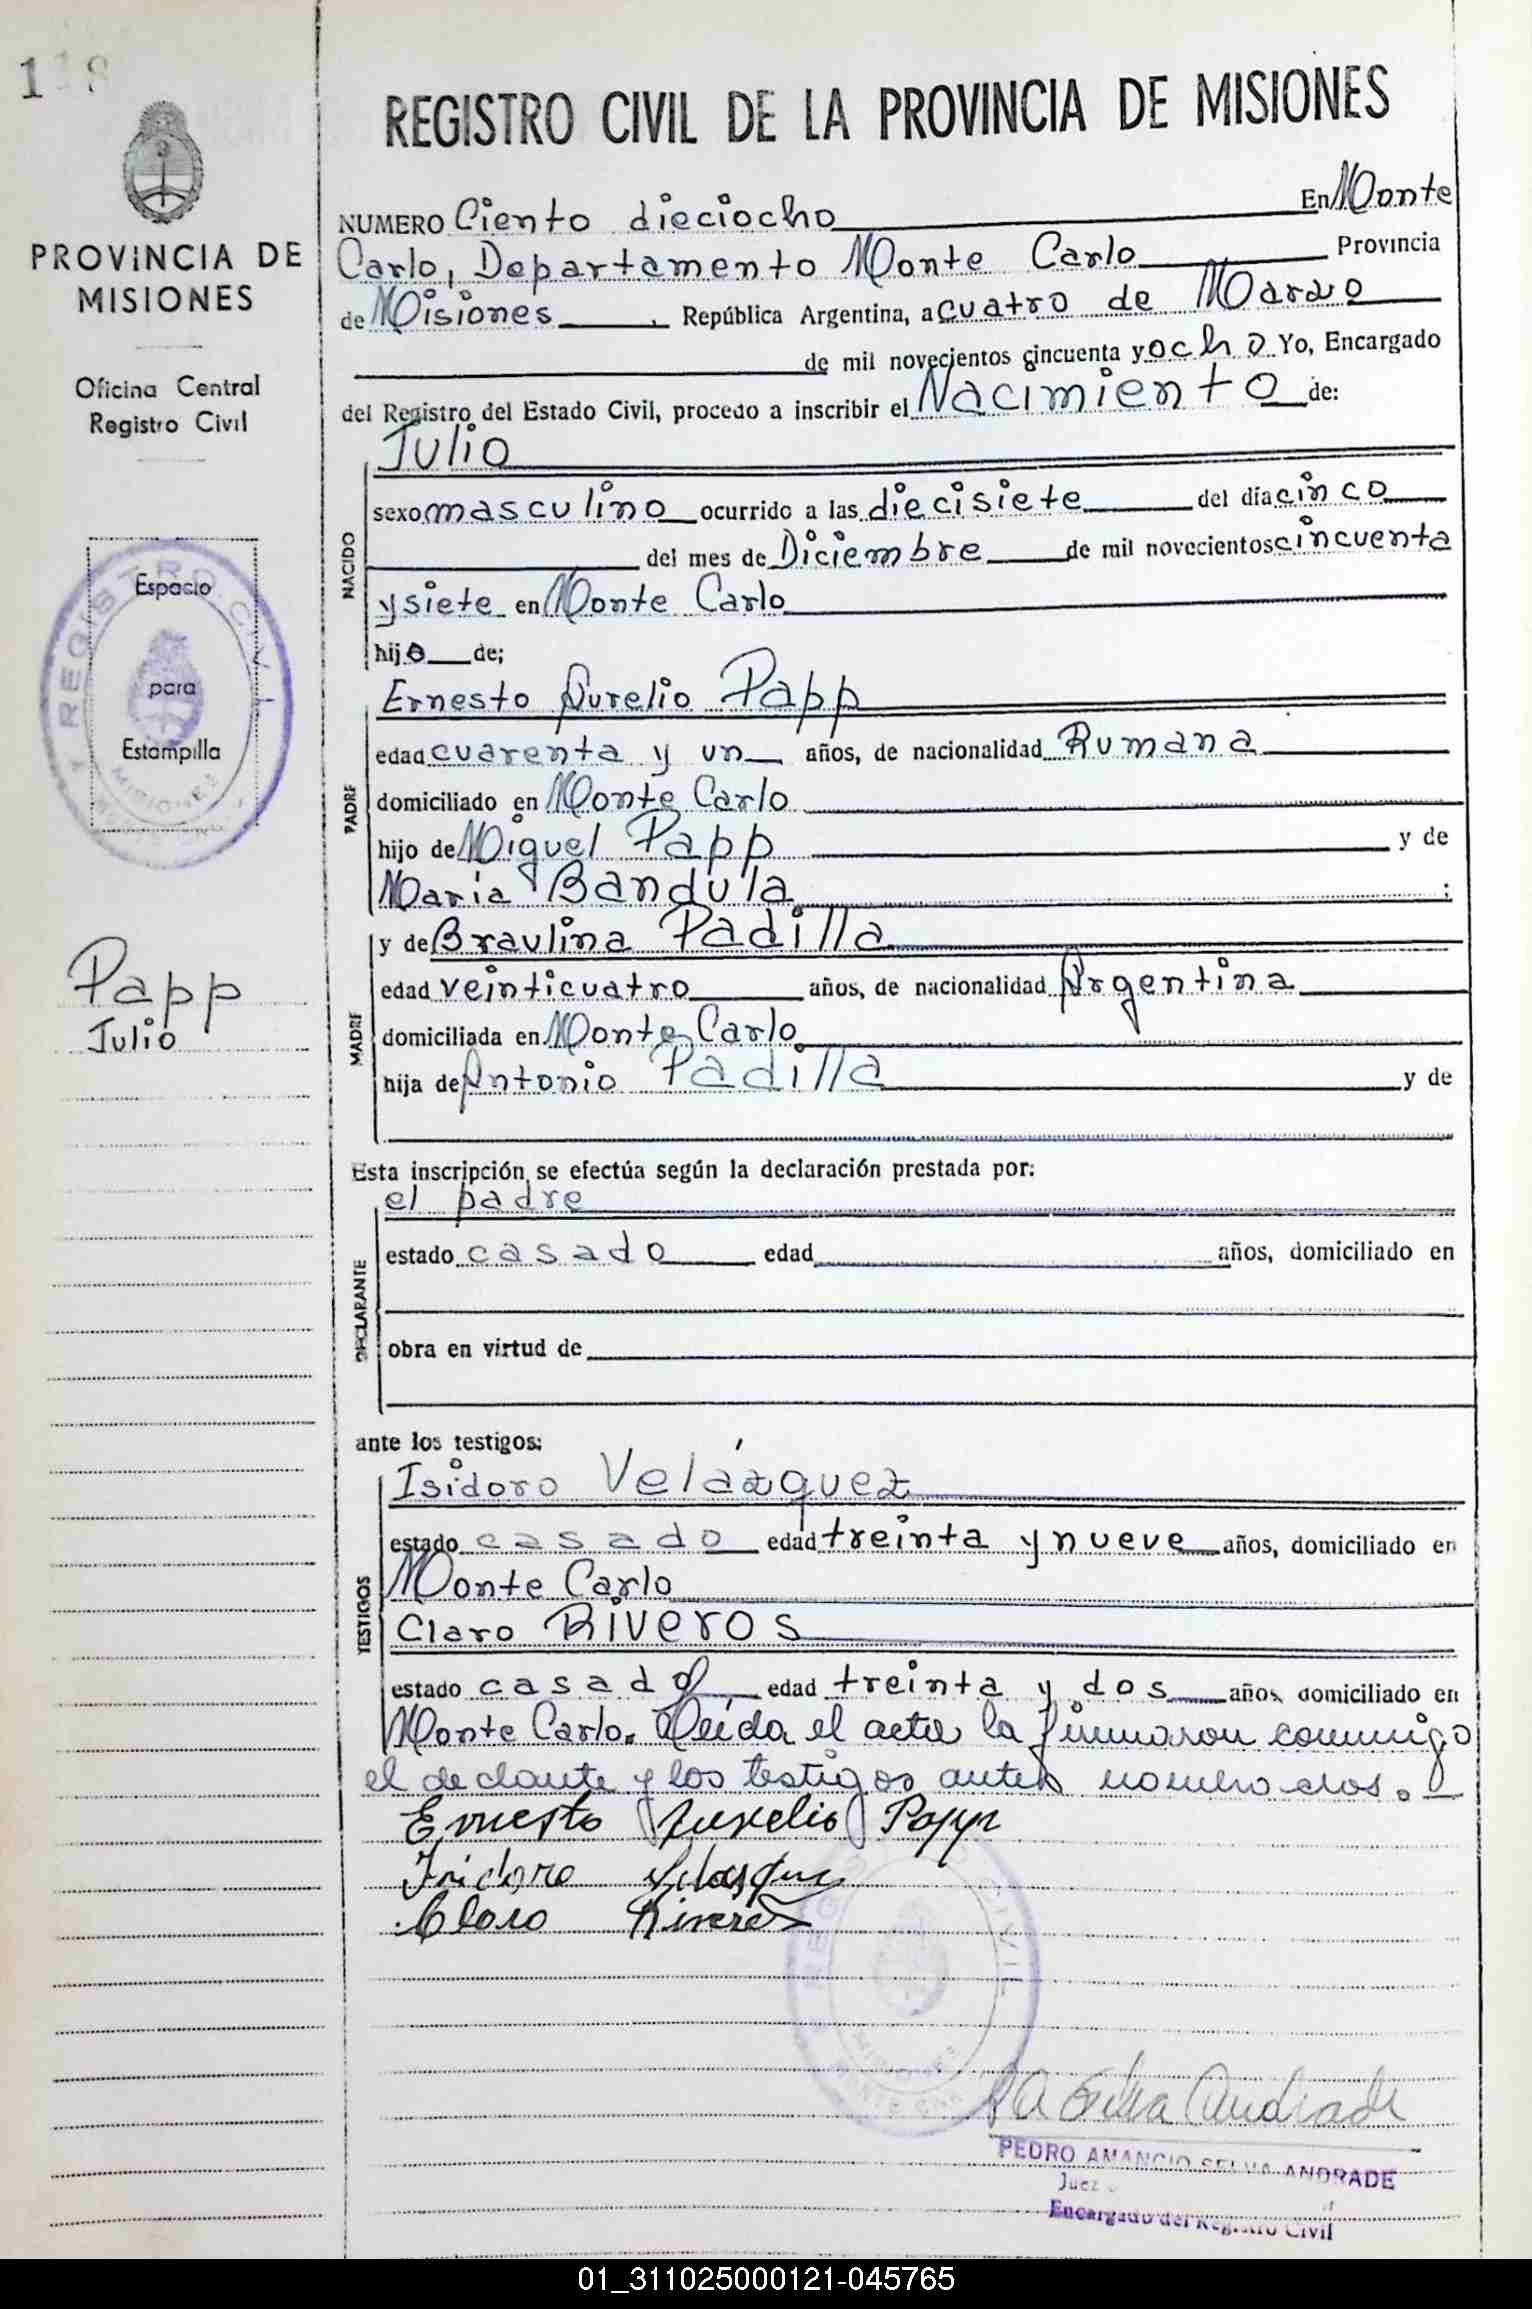 118
PROVINCIA DE
MISIONES
Oficina Central
Registro Civil
Espacio
para
Estampilla
REGISTRO CIVIL
MISIONES
Papp
Julio
REGISTRO CIVIL DE LA PROVINCIA DE MISIONES
NUMERO Ciento dieciocho En Monte
Carlo, Departamento Monte Carlo Provincia
de Misiones, República Argentina, a cuatro de Marzo
de mil novecientos cincuenta y ocho Yo, Encargado
del Registro del Estado Civil, procedo a inscribir el Nacimiento de:
NACIDO
Julio
sexo masculino ocurrido a las diecisiete del día cinco
del mes de Diciembre de mil novecientos cincuenta
y siete en Monte Carlo
hijo de;
PADRE
Ernesto Aurelio Papp
edad cuarenta y un años, de nacionalidad Rumana
domiciliado en Monte Carlo
hijo de Miguel Papp y de
Maria Bandula ;
MADRE
y de Braulina Padilla
edad veinticuatro años, de nacionalidad Argentina
domiciliada en Monte Carlo
hija de Antonio Padilla y de
Esta inscripción se efectúa según la declaración prestada por:
DECLARANTE
el padre
estado casado edad años, domiciliado en
obra en virtud de
ante los testigos:
TESTIGOS
Isidoro Velázquez
estado casado edad treinta y nueve años, domiciliado en
Monte Carlo
Claro Riveros
estado casado, edad treinta y dos años, domiciliado en
Monte Carlo. Leída el acta la firmaron conmigo
el declante y los testigos antes nombrados.
Ernesto Aurelio Papp
Isidoro Velasquez
Claro Riveros
REGISTRO CIVIL
PEDRO AMANCIO SELVA ANDRADE
Juez
Encargado del Registro Civil
01_311025000121-045765